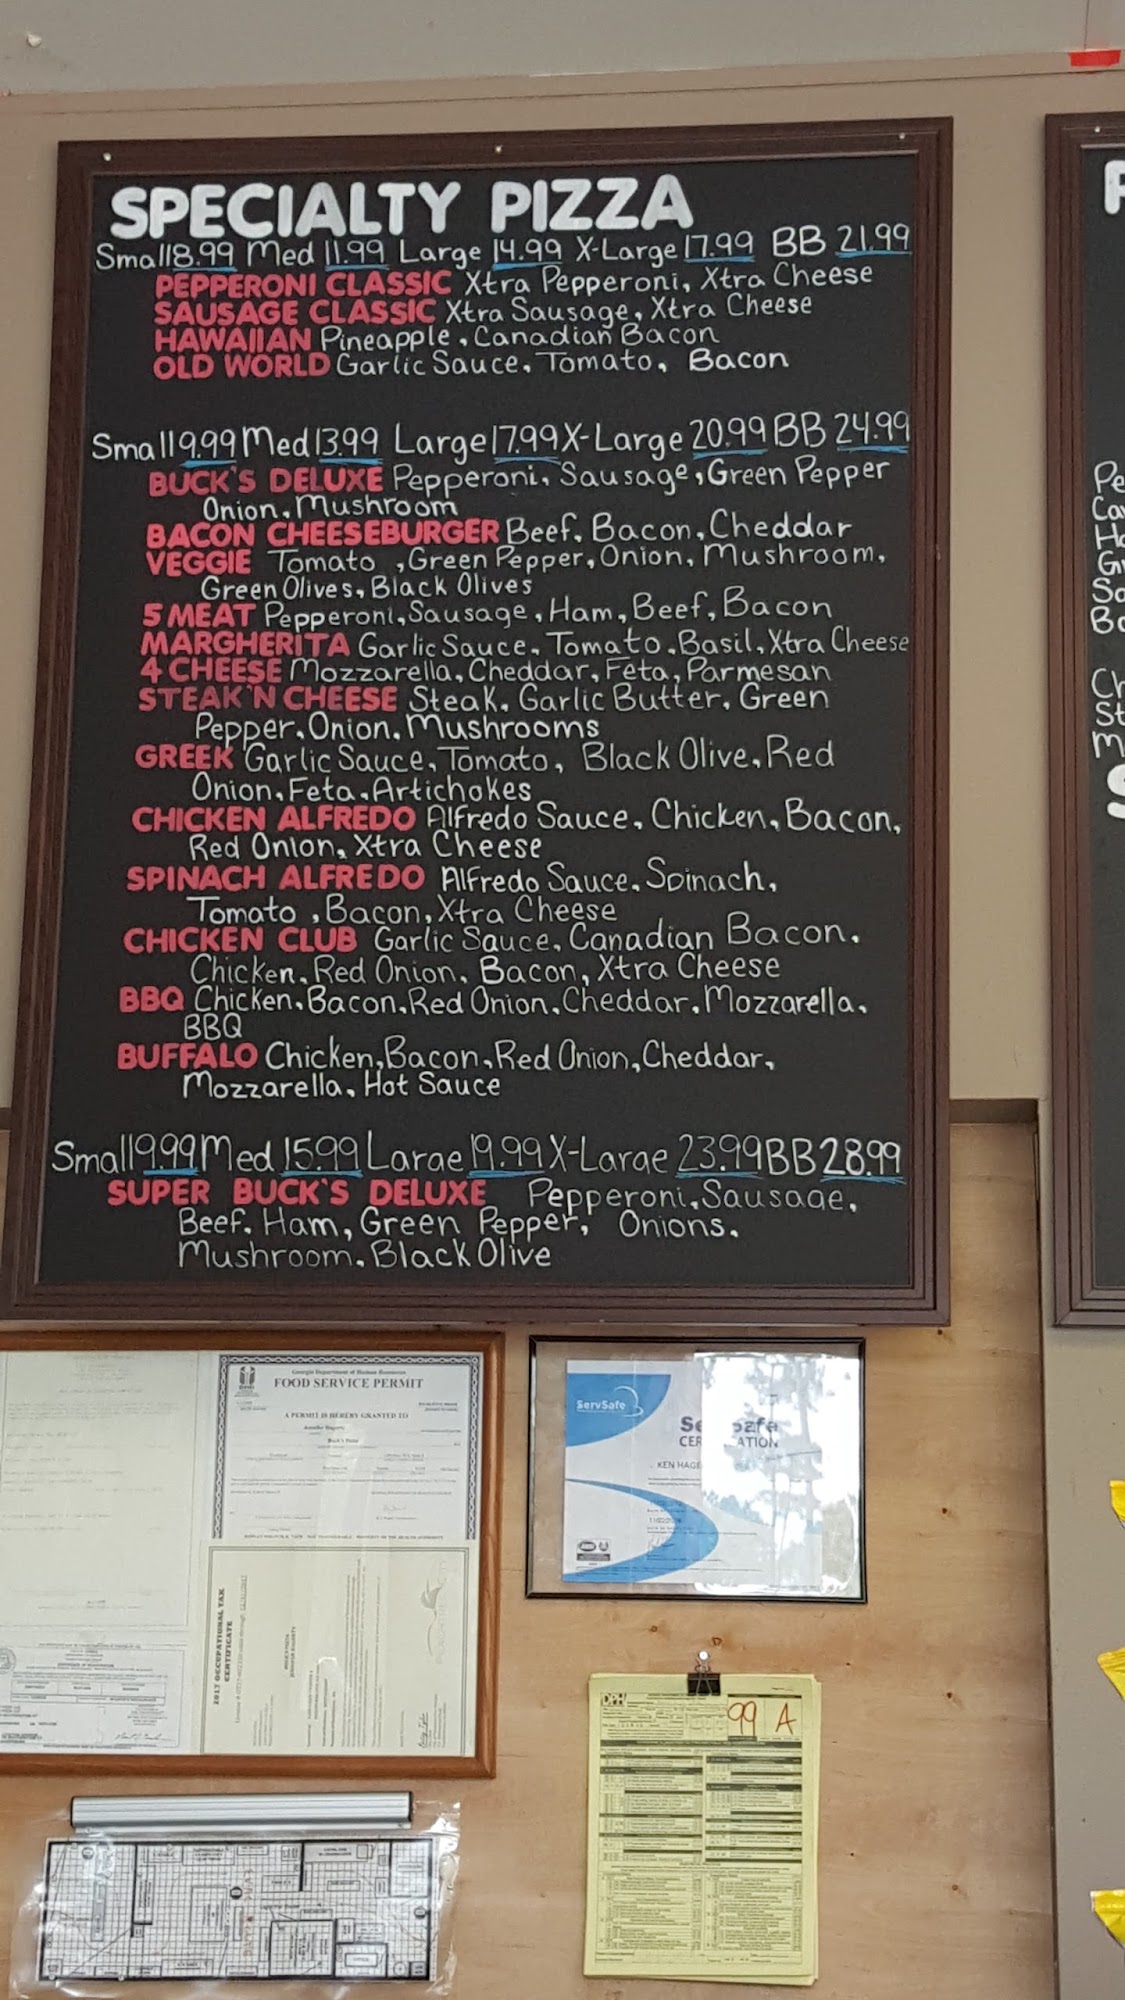 SPECIALTY PIZZA
Small 8.99 Med 11.99 Large 14.99 X-Large 17.99 BB 21.99
PEPPERONI CLASSIC Xtra Pepperoni, Xtra Cheese
SAUSAGE CLASSIC Xtra Sausage, Xtra Cheese
HAWAIIAN Pineapple, Canadian Bacon
OLD WORLD Garlic Sauce, Tomato, Bacon
Small 9.99 Med 13.99 Large 17.99 X-Large 20.99 BB 24.99
BUCK'S DELUXE Pepperoni, Sausage, Green Pepper
Onion, Mushroom
BACON CHEESEBURGER Beef, Bacon, Cheddar
VEGGIE Tomato, Green Pepper, Onion, Mushroom,
Green Olives, Black Olives
5 MEAT Pepperoni, Sausage, Ham, Beef, Bacon
MARGHERITA Garlic Sauce, Tomato, Basil, Xtra Cheese
4 CHEESE Mozzarella, Cheddar, Feta, Parmesan
STEAK'N CHEESE Steak, Garlic Butter, Green
Pepper, Onion, Mushrooms
GREEK Garlic Sauce, Tomato, Black Olive, Red
Onion, Feta, Artichokes
CHICKEN ALFREDO Alfredo Sauce, Chicken, Bacon,
Red Onion, Xtra Cheese
SPINACH ALFREDO Alfredo Sauce, Spinach,
Tomato, Bacon, Xtra Cheese
CHICKEN CLUB Garlic Sauce, Canadian Bacon,
Chicken, Red Onion, Bacon, Xtra Cheese
BBQ Chicken, Bacon, Red Onion, Cheddar, Mozzarella,
BBQ
BUFFALO Chicken, Bacon, Red Onion, Cheddar,
Mozzarella, Hot Sauce
Small 9.99 Med 15.99 Large 19.99 X-Large 23.99 BB 28.99
SUPER BUCK'S DELUXE Pepperoni, Sausage,
Beef, Ham, Green Pepper, Onions,
Mushroom, Black Olive
Georgia Department of Human Resources
FOOD SERVICE PERMIT
A PERMIT IS HEREBY GRANTED TO
Buck's Pizza
2017 OCCUPATIONAL TAX
CERTIFICATE
ServSafe
CERTIFICATION
KEN
DPH
99 A